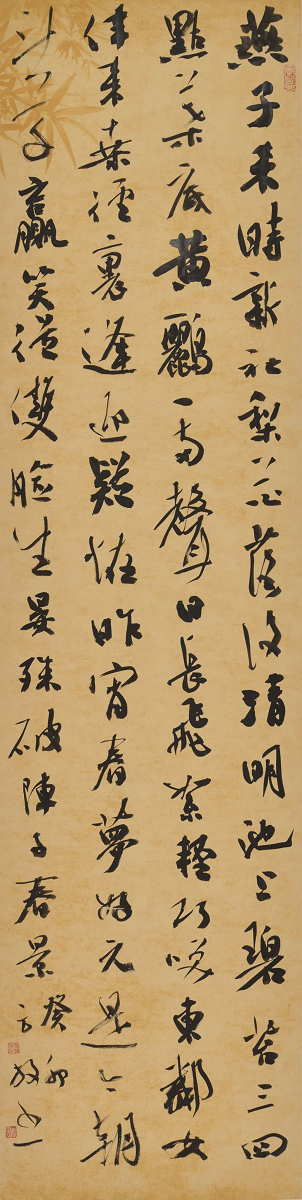 燕子來時新社梨花落後清明池上碧苔三四
點葉底黃鸝一兩聲日長飛絮輕巧笑東鄰女
伴采桑徑裏逢迎疑怪昨宵春夢好元是今朝
鬥草贏笑從雙臉生晏殊破陣子春景
癸卯